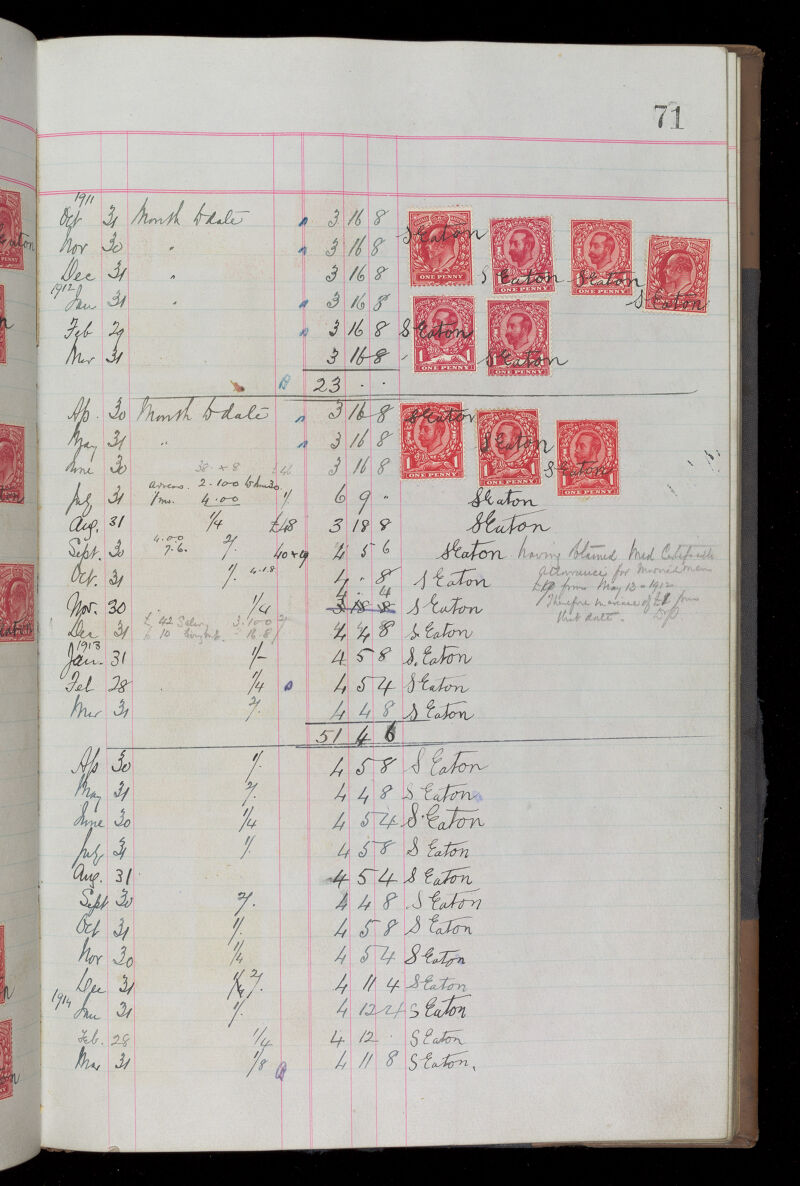 71
1911
Oct 31 Month to date 3 16 8 S Eaton
Nov 30 " 3 16 8 S Eaton S Eaton
Dec 31 " 3 16 8 S Eaton
1912
Jan 31 " 3 16 8
Feb 29 3 16 8 S Eaton
Mar 31 3 16 8 S Eaton
ONE PENNY ONE PENNY ONE PENNY ONE PENNY
1 ONE PENNY 1 ONE PENNY
23 . .
Ap. 30 Month to date 3 16 8 S Eaton
May 31 " 3 16 8 S Eaton
June 30 38 . × 8 £46 3 16 8 S Eaton
1 ONE PENNY 1 1 ONE PENNY 1 1 ONE PENNY 1
arrears 2.10.0 to June 30.
July 31 4.0.0 1/. 6 9 " S Eaton
Aug. 31 1/4 £48 3 18 8 S Eaton
Sept. 30 4.0.0 7.6. 2/. 4 5 6 S Eaton having obtained Med Certificate
allowance for married men
Oct. 31 1/. 4.1.8 4 . 8 S Eaton
from May 13 - 1912
4 . 4
Nov. 30 1/4 3 18 8 S Eaton
Therefore increase of £1 from
that date.
£ 42 Salary 3.10.0
Dec 31 £ 10 16.8 2/ 4 4 8 S Eaton
1913
Jan. 31 1/- 4 5 8 S. Eaton
Feb 28 1/4 4 5 4 S Eaton
Mar 31 2/. 4 4 8 S Eaton
51 4 6
Ap 30 1/. 4 5 8 S Eaton
May 31 2/. 4 4 8 S Eaton
June 30 1/4 4 5 4 S. Eaton
July 31 1/. 4 5 8 S Eaton
Aug. 31 4 5 4 S Eaton
Sept 30 2/. 4 4 8 S Eaton
Oct 31 1/. 4 5 8 S Eaton
Nov 30 1/4 4 5 4 S Eaton
Dec 31 1/4 2/. 4 11 4 S Eaton
1914
Jan 31 1/. 4 12 4 S Eaton
Feb. 28 1/4 4 12 . S Eaton
Mar 31 1/8 4 11 8 S Eaton.